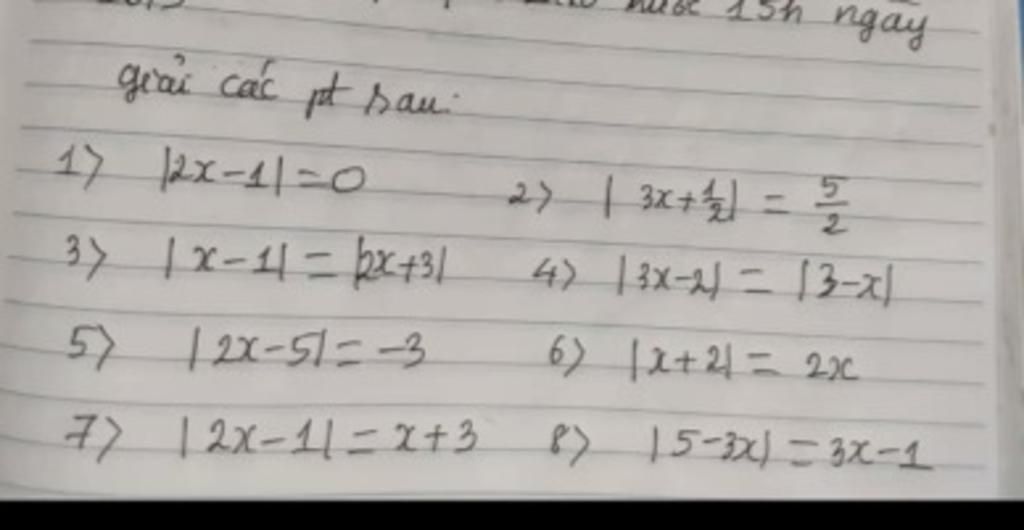 15h ngay
giải các pt sau:
1) |2x-1| = 0 2) |3x+1/2| = 5/2
3) |x-1| = |2x+3| 4) |3x-2| = |3-x|
5) |2x-5| = -3 6) |x+2| = 2x
7) |2x-1| = x+3 8) |5-3x| = 3x-1